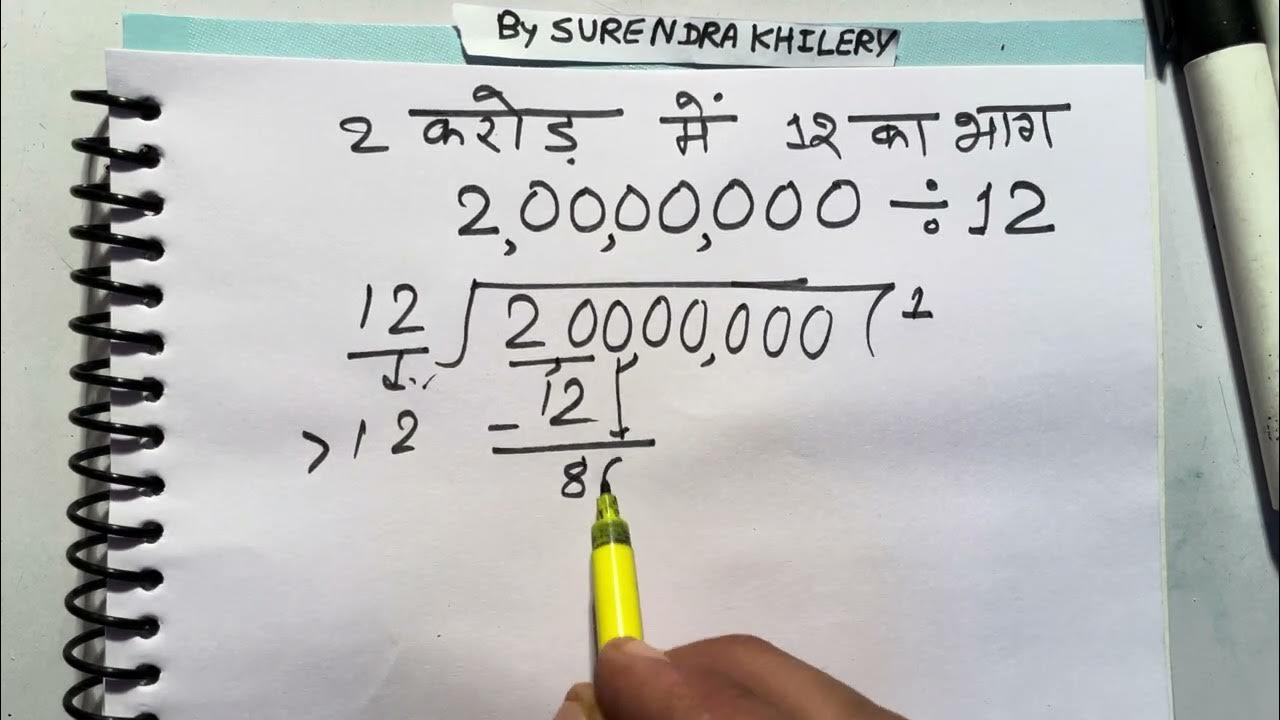 By SURENDRA KHILERY
2 करोड़ में 12 का भाग
2,00,00,000 ÷ 12
12 2,0000,000 1
1
> 12 - 12
8